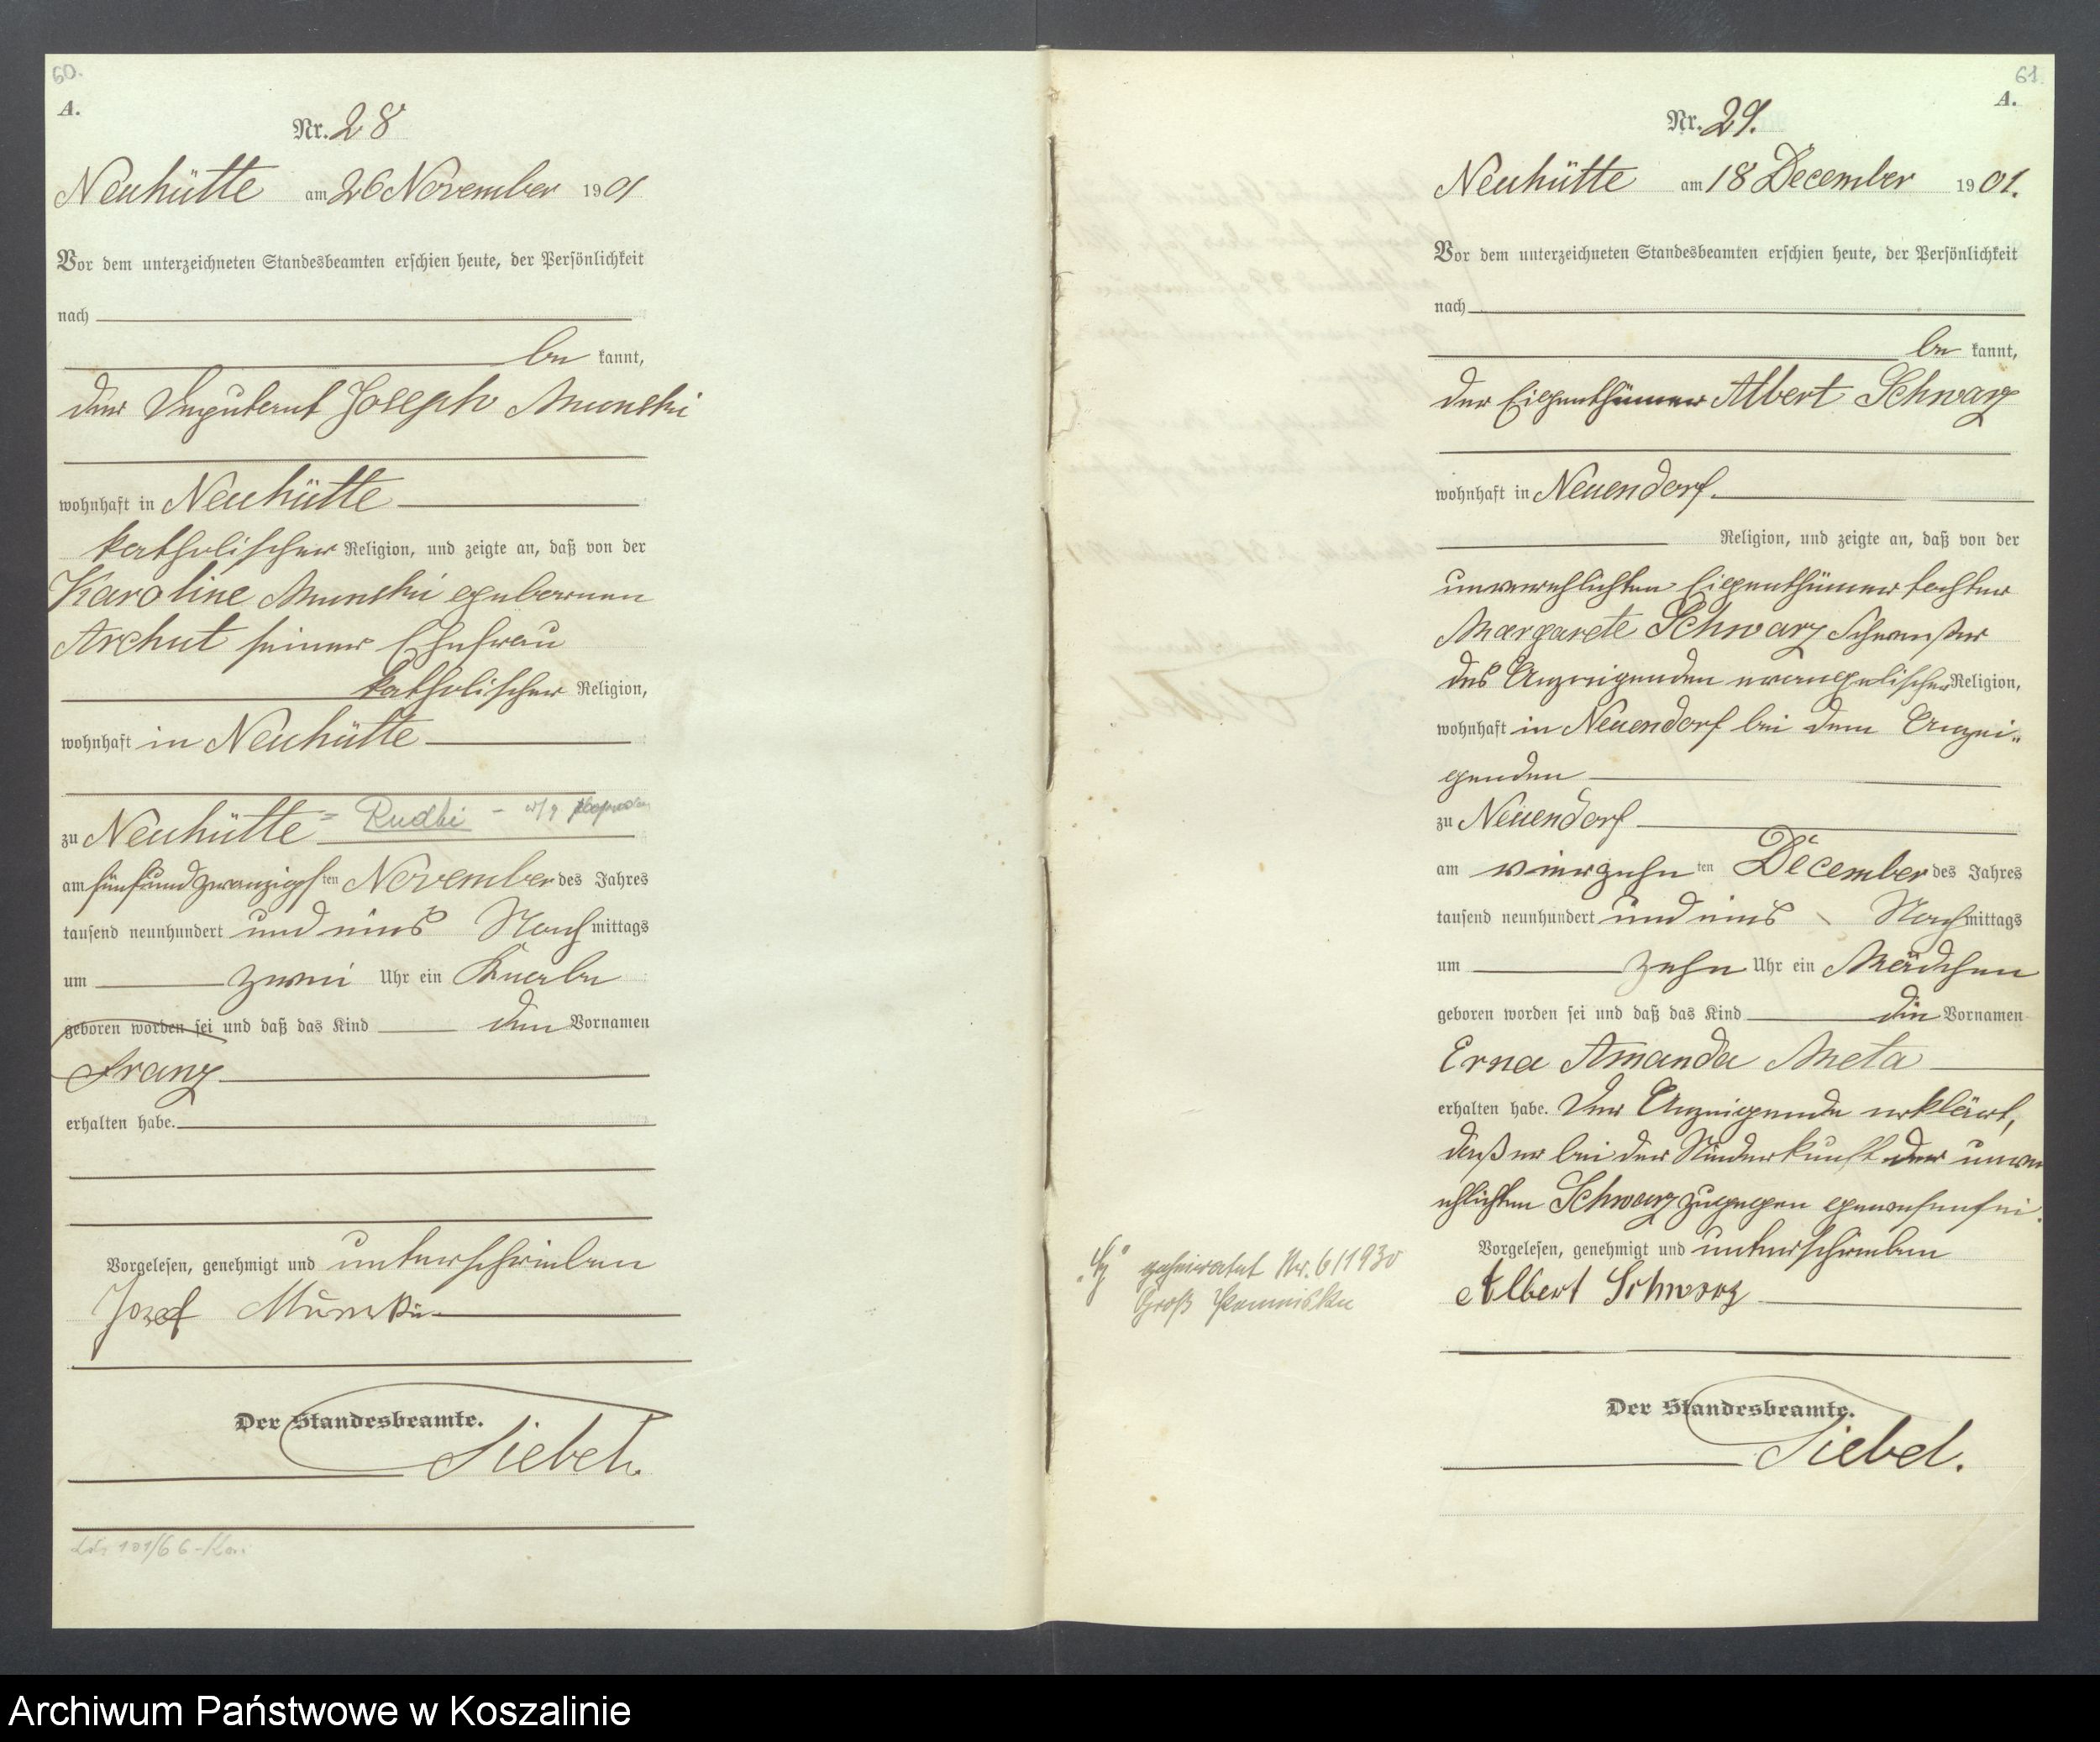 60.
A.
Nr. 28
Neuhütte am 26 November 1901
Vor dem unterzeichneten Standesbeamten erschien heute, der Persönlichkeit
nach
be kannt,
der Joseph Munski
wohnhaft in Neuhütte
katholischer Religion, und zeigte an, daß von der
Karoline Munski geborenen
Archut seiner Ehefrau
katholischer Religion,
wohnhaft in Neuhütte
zu Neuhütte = Rudki -
am fünfundzwanzigsten November des Jahres
tausend neunhundert und eins Nachmittags
um zwei Uhr ein Knabe
geboren worden sei und daß das Kind den Vornamen
Franz
erhalten habe.
Vorgelesen, genehmigt und unterschrieben
Josef Munski
Der Standesbeamte.
Siebel.
101/66
61.
A.
Nr. 29.
Neuhütte am 18 December 1901.
Vor dem unterzeichneten Standesbeamten erschien heute, der Persönlichkeit
nach
be kannt,
der Eigenthümer Albert Schwarz
wohnhaft in Neuendorf.
Religion, und zeigte an, daß von der
unverehlichten Eigenthümertochter
Margarete Schwarz Schwester
des Anzeigenden evangelischer Religion,
wohnhaft in Neuendorf bei dem Anzei„
genden
zu Neuendorf
am vierzehnten December des Jahres
tausend neunhundert und eins Nachmittags
um zehn Uhr ein Mädchen
geboren worden sei und daß das Kind die Vornamen
Erna Amanda Meta
erhalten habe. Der Anzeigende erklärt,
daß er bei der Niederkunft der unver
ehlichten Schwarz zugegen gewesen sei.
geheiratet Nr. 6/1930
Groß
Vorgelesen, genehmigt und unterschrieben
Albert Schwarz
Der Standesbeamte.
Siebel.
Archiwum Państwowe w Koszalinie